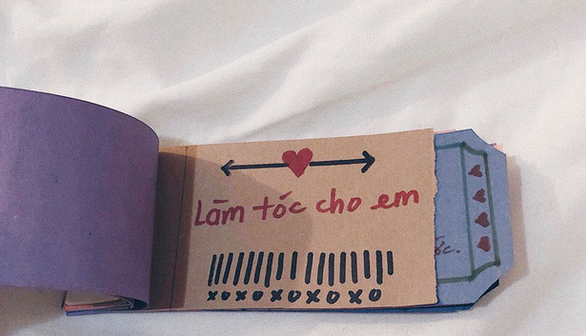 Làm tóc cho em
xoxoxoxoxoxo